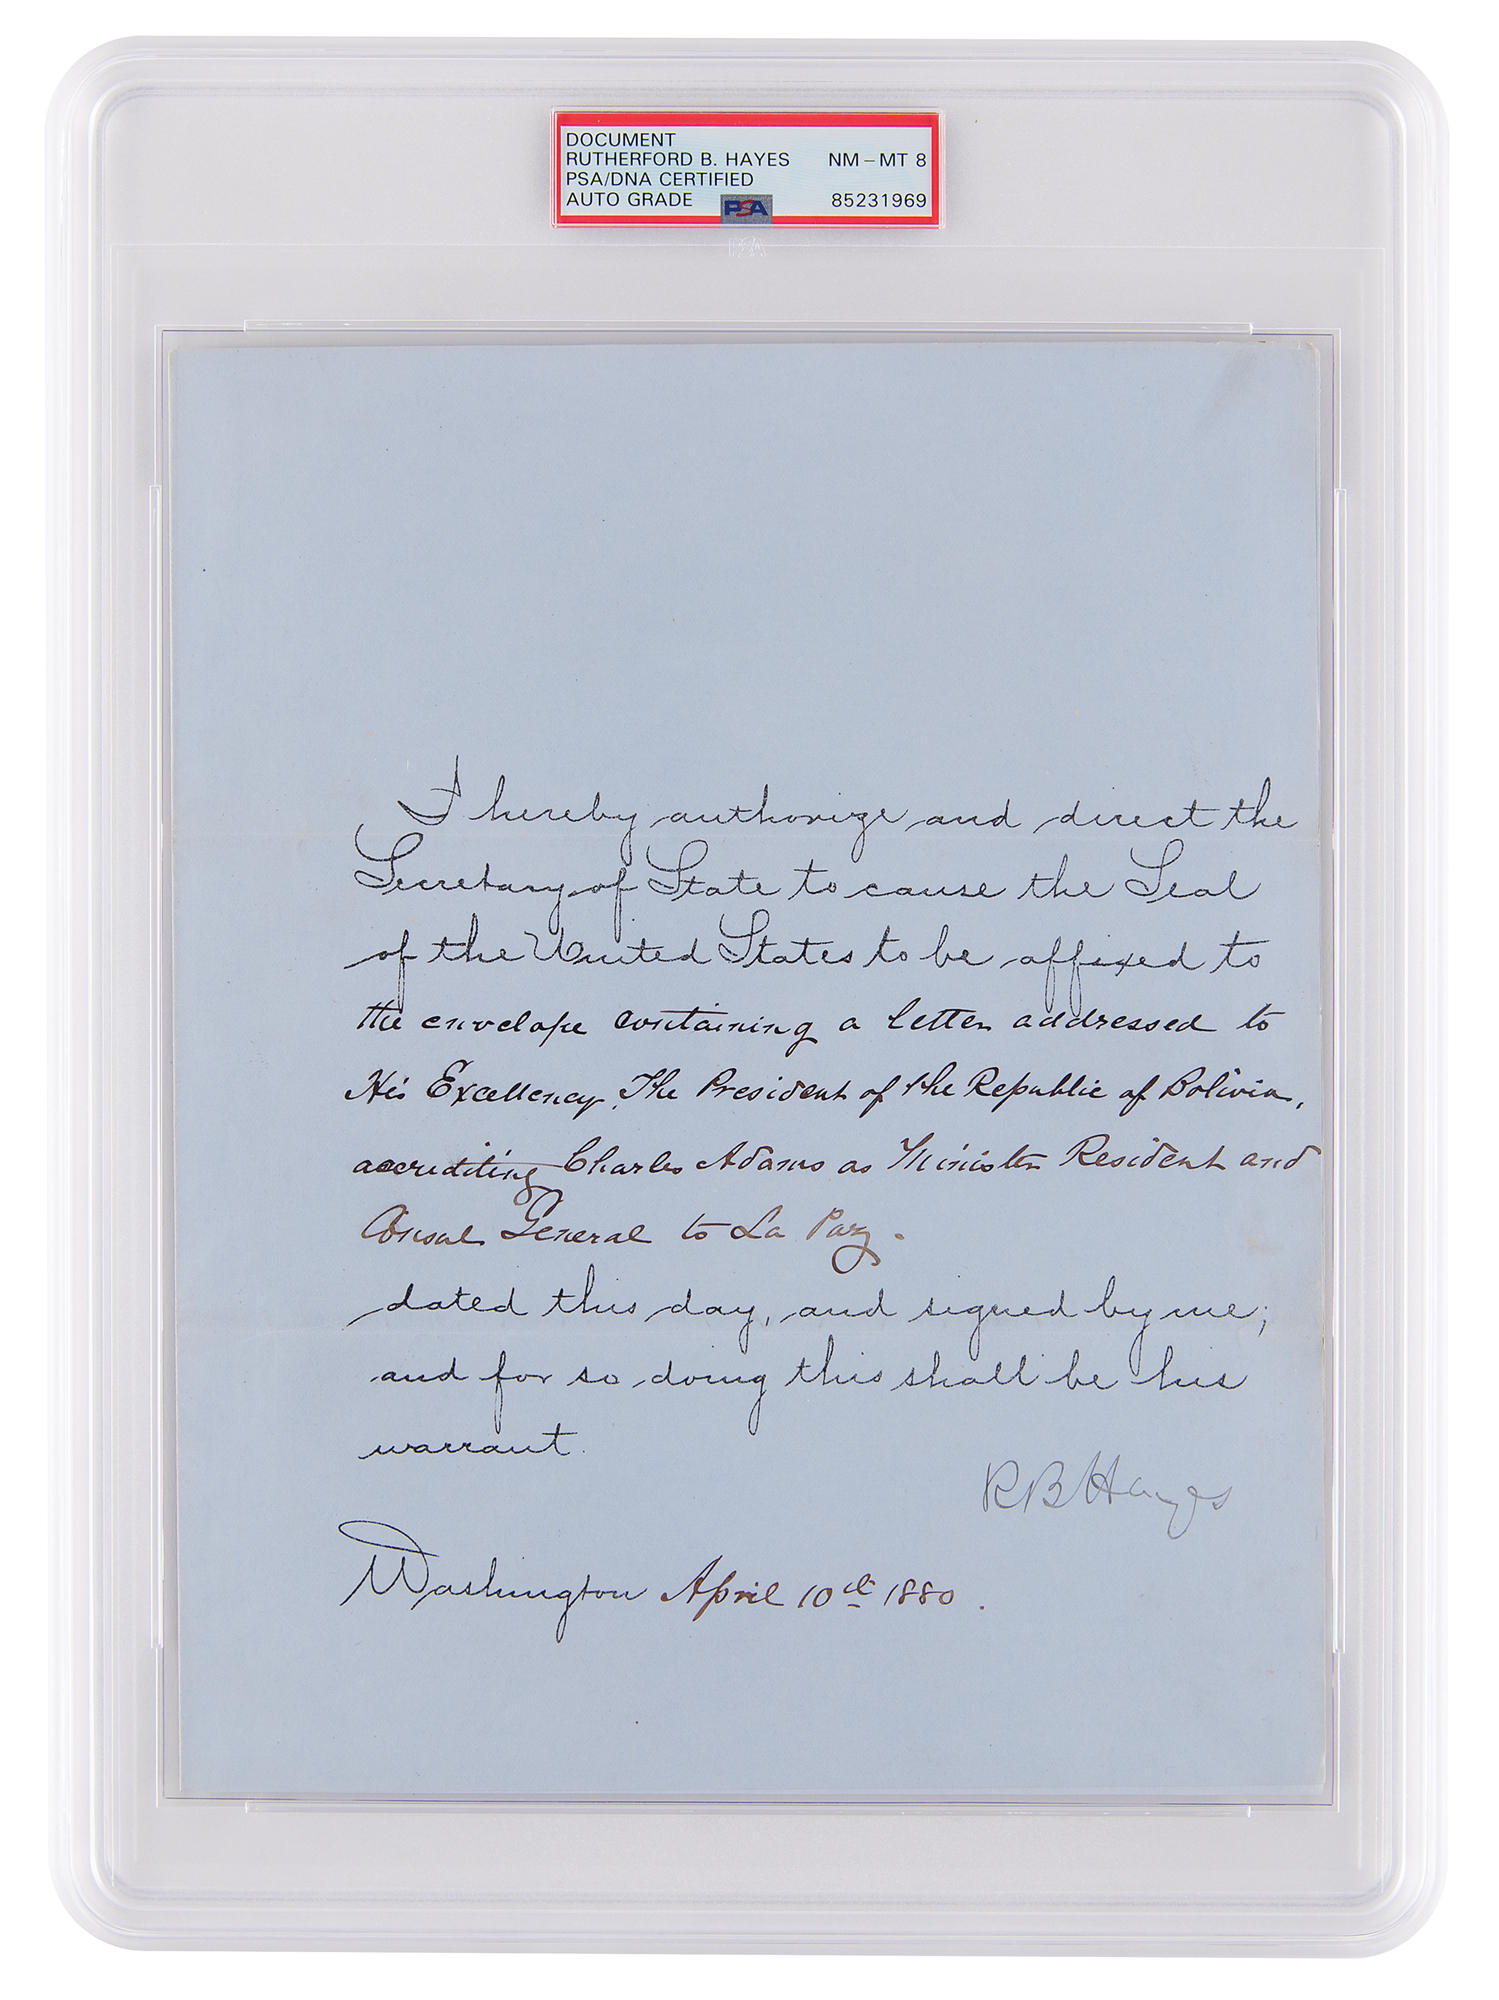 DOCUMENT
RUTHERFORD B. HAYES NM-MT 8
PSA/DNA CERTIFIED
AUTO GRADE PSA 85231969
PSA
I hereby authorize and direct the
Secretary of State to cause the Seal
of the United States to be affixed to
the envelope containing a letter addressed to
His Excellency, The President of the Republic of Bolivia,
accrediting Charles Adams as Minister Resident and
Consul General to La Paz.
dated this day, and signed by me;
and for so doing this shall be his
warrant.
R B Hayes
Washington April 10th 1880.